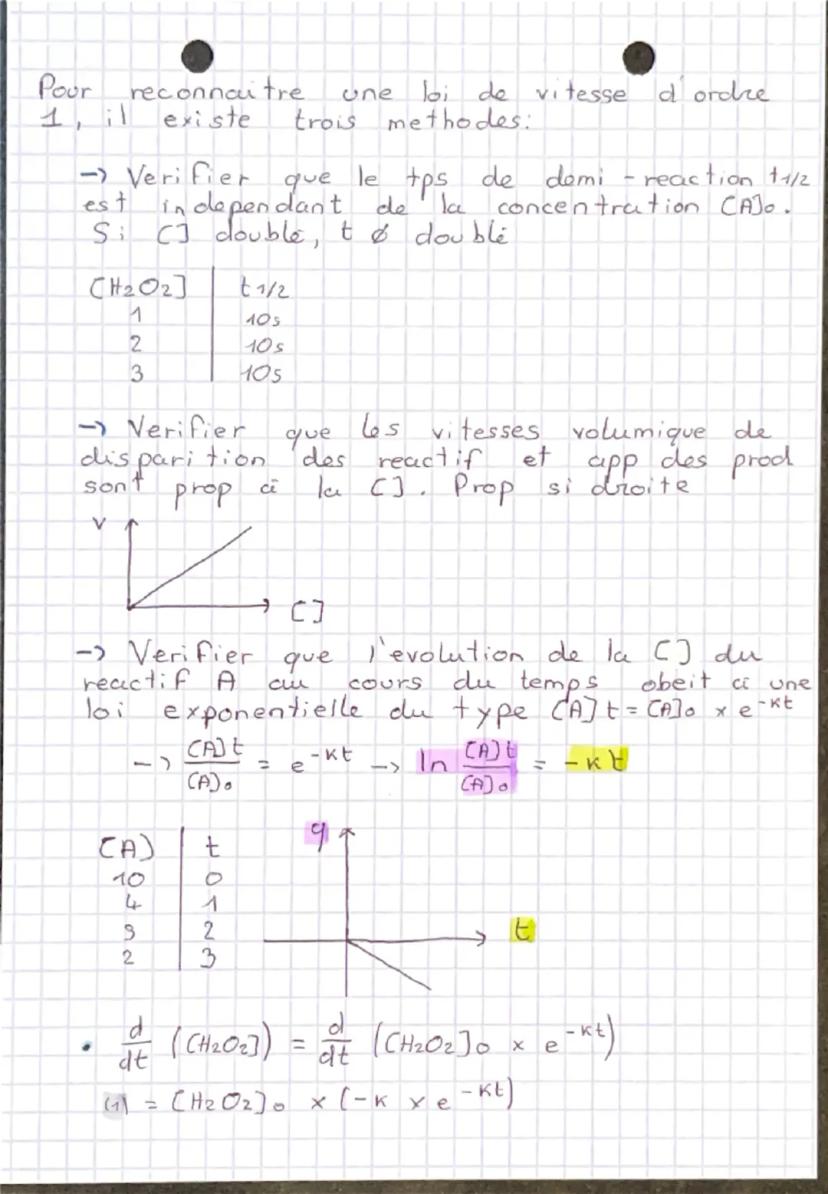 Pour reconnaitre une loi de vitesse d'ordre
1, il existe trois methodes:
-> Verifier que le tps de demi-reaction t1/2
est independant de la concentration [A]0.
Si [] double, t Ø doublé
[H2O2] | t1/2
1 | 10s
2 | 10s
3 | 10s
-> Verifier que les vitesses volumique de
disparition des reactif et app des prod
sont prop à la []. Prop si droite
v
[]
-> Verifier que l'evolution de la [] du
reactif A au cours du temps obeit à une
loi exponentielle du type [A]t = [A]0 x e^-kt
-> [A]t/[A]0 = e^-kt -> ln [A]t/[A]0 = -kt
[A] | t
10 | 0
4 | 1
3 | 2
2 | 3
q
t
• d/dt ([H2O2]) = d/dt ([H2O2]0 x e^-kt)
(1) = [H2O2]0 x (-k x e^-kt)